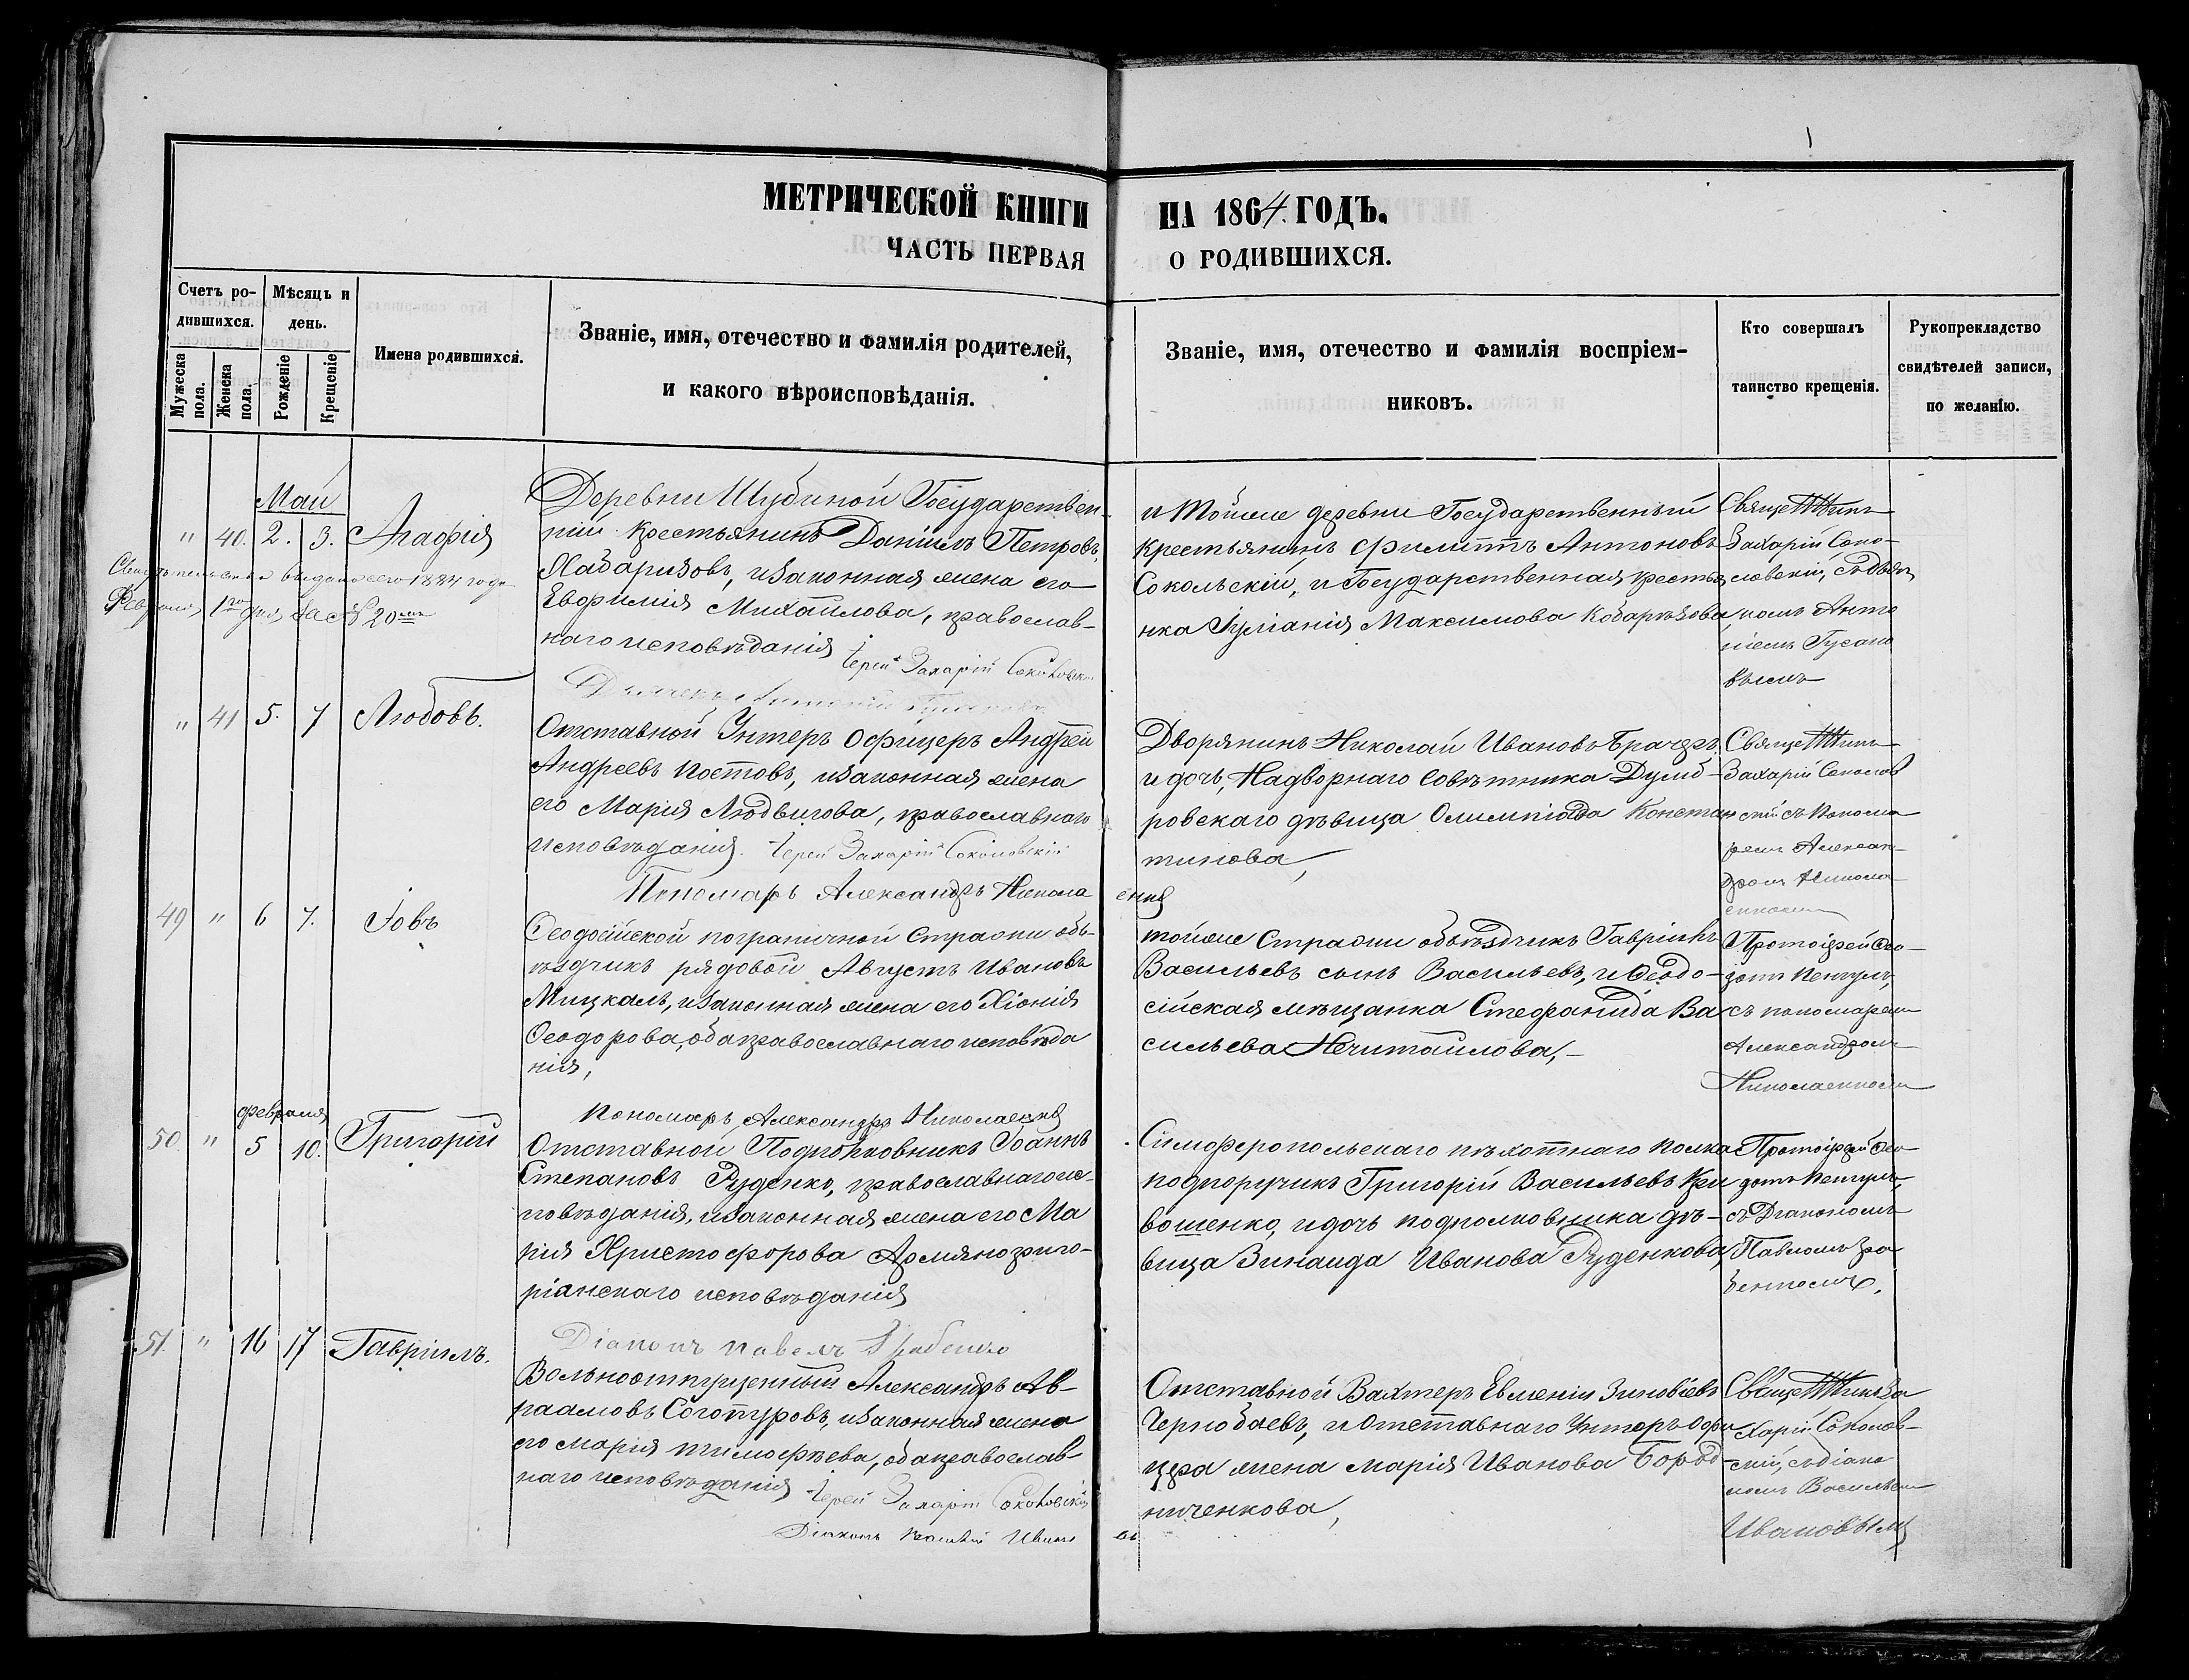 МЕТРИЧЕСКОЙ КНИГИ НА 1864. ГОДЪ.
ЧАСТЬ ПЕРВАЯ О РОДИВШИХСЯ.
Счетъ ро-
дившихся.
Мужеска
пола.
Женска
пола.
Мѣсяцъ и
день.
Рожденіе
Крещеніе
Имена родившихся.
Званіе, имя, отечество и фамилія родителей,
и какого вѣроисповѣданія.
Званіе, имя, отечество и фамилія воспріем-
никовъ.
Кто совершалъ
таинство крещенія.
Рукоприкладство
свидѣтелей записи,
по желанію.
Май
" 40. 2. 3. Агафія
1884 года
1го дня за № 20мъ
Деревни Шубиной Государствен-
ній крестьянинъ Даніилъ Петровъ,
и законная жена его
Евфимія Михаилова, православ-
наго исповѣданія
Іерей Захарій Соколовскій
и тойже деревни Государственный
крестьянинъ Филиппъ Антоновъ
Сокольскій, и Государственная крестья
нка Іуліанія Максимова
Священникъ
Захарій Соко-
ловскій, съ дья
комъ Анто
ніемъ Гусако
вымъ
" 41 5. 7 Любовь.
Отставной Унтеръ Офицеръ Андрей
Андреевъ Постовъ, и законная жена
его Марія Людвигова, православнаго
исповѣданія. Іерей Захарій Соколовскій
Пономарь Александръ Никола
енко
Дворянинъ Николай Ивановъ
и дочь, Надворнаго Совѣтника Думб-
ровскаго дѣвица Олимпіада Констан
тинова,
Священникъ
Захарій Соколов
скій съ Понома
ремъ Алексан-
дромъ Никола
енкомъ
49 " 6 7. Іовъ
Феодосійской пограничной Стражи объ-
ѣздчикъ рядовой Августъ Ивановъ
Мицкалъ, и законная жена его Хіонія
Феодорова, оба православнаго исповѣда
нія,
Пономарь Александръ Николаенко
тойже Стражи объѣздчикъ Гавріилъ
Васильевъ сынъ Васильевъ, и Феодо-
сійская мѣщанка Стефанида Ва
сильева Нечитайлова,
Протоіерей Фео-
дотъ
съ пономаремъ
Александромъ
Николаенкомъ
февраля
50. " 5 10. Григорій
Отставной Подполковникъ Іоаннъ
Степановъ Руденко, православнаго ис-
повѣданія, и законная жена его Ма
рія Христофорова Армяногриго-
ріанскаго исповѣданія
Діаконъ Павелъ Грабенко
Симферопольскаго пѣхотнаго полка
подпоручикъ Григорій Васильевъ Кри
вошенко, и дочь подполковника дѣ-
вица Зинаида Иванова Руденкова,
Протоіерей Фео
дотъ
съ Діакономъ
Павломъ Гра
бенкомъ,
51. " 16 17 Гавріилъ.
Вольноотпущенный Александръ Ав-
раамовъ Соготуровъ, и законная жена
его Марія Тимофѣева, оба православ-
наго исповѣданія
Іерей Захарій Соколовскій
Діаконъ Василій Ивановъ
Отставной Вахтеръ Евменій Зиновіевъ
Чернобаевъ, и Отставнаго Унтеръ Офи
цера жена Марія Иванова Бород-
ниченкова,
Священникъ За
харій Соколов-
скій, съ діако
номъ Василіем
Ивановымъ